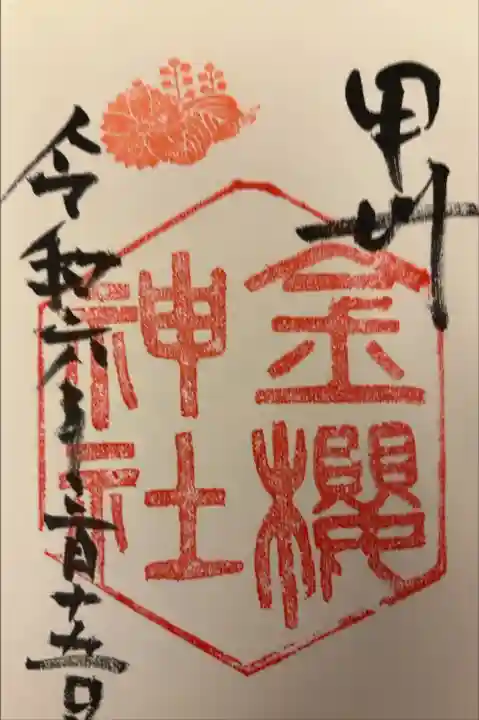 甲州
金櫻
神社
令和六年 月十五日